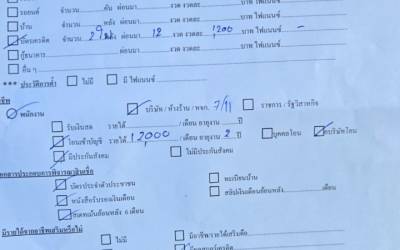 รถยนต์ จำนวน คัน ผ่อนมา งวด งวดละ บาท ไฟแนนซ์
บ้าน จำนวน หลัง ผ่อนมา งวด งวดละ บาท ไฟแนนซ์
บัตรเครดิต จำนวน 2 ใบ ผ่อนมา 12 งวด งวดละ 1,200 บาท ไฟแนนซ์ -
กู้ธนาคาร ผ่อนมา งวด งวดละ บาท ไฟแนนซ์
อื่น ๆ
*** ประวัติการค้ำ ไม่มี มี ไฟแนนซ์
ชีพ
พนักงาน บริษัท / ห้างร้าน / หจก. 7/11 ราชการ / รัฐวิสาหกิจ
รับเงินสด รายได้ /เดือน อายุงาน ปี
โอนเข้าบัญชี รายได้ 12,000 /เดือน อายุงาน 2 ปี บุคคลโอน บริษัทโอน
มีประกันสังคม ไม่มีประกันสังคม
เอกสารประกอบการพิจารณาสินเชื่อ
บัตรประจำตัวประชาชน ทะเบียนบ้าน
หนังสือรับรองเงินเดือน สลิปเงินเดือนย้อนหลัง เดือน
สเตทเม้นย้อนหลัง 6 เดือน
มีรายได้จากอาชีพเสริมหรือไม่
ไม่มี มีอาชีพ/รายได้เสริมคือ